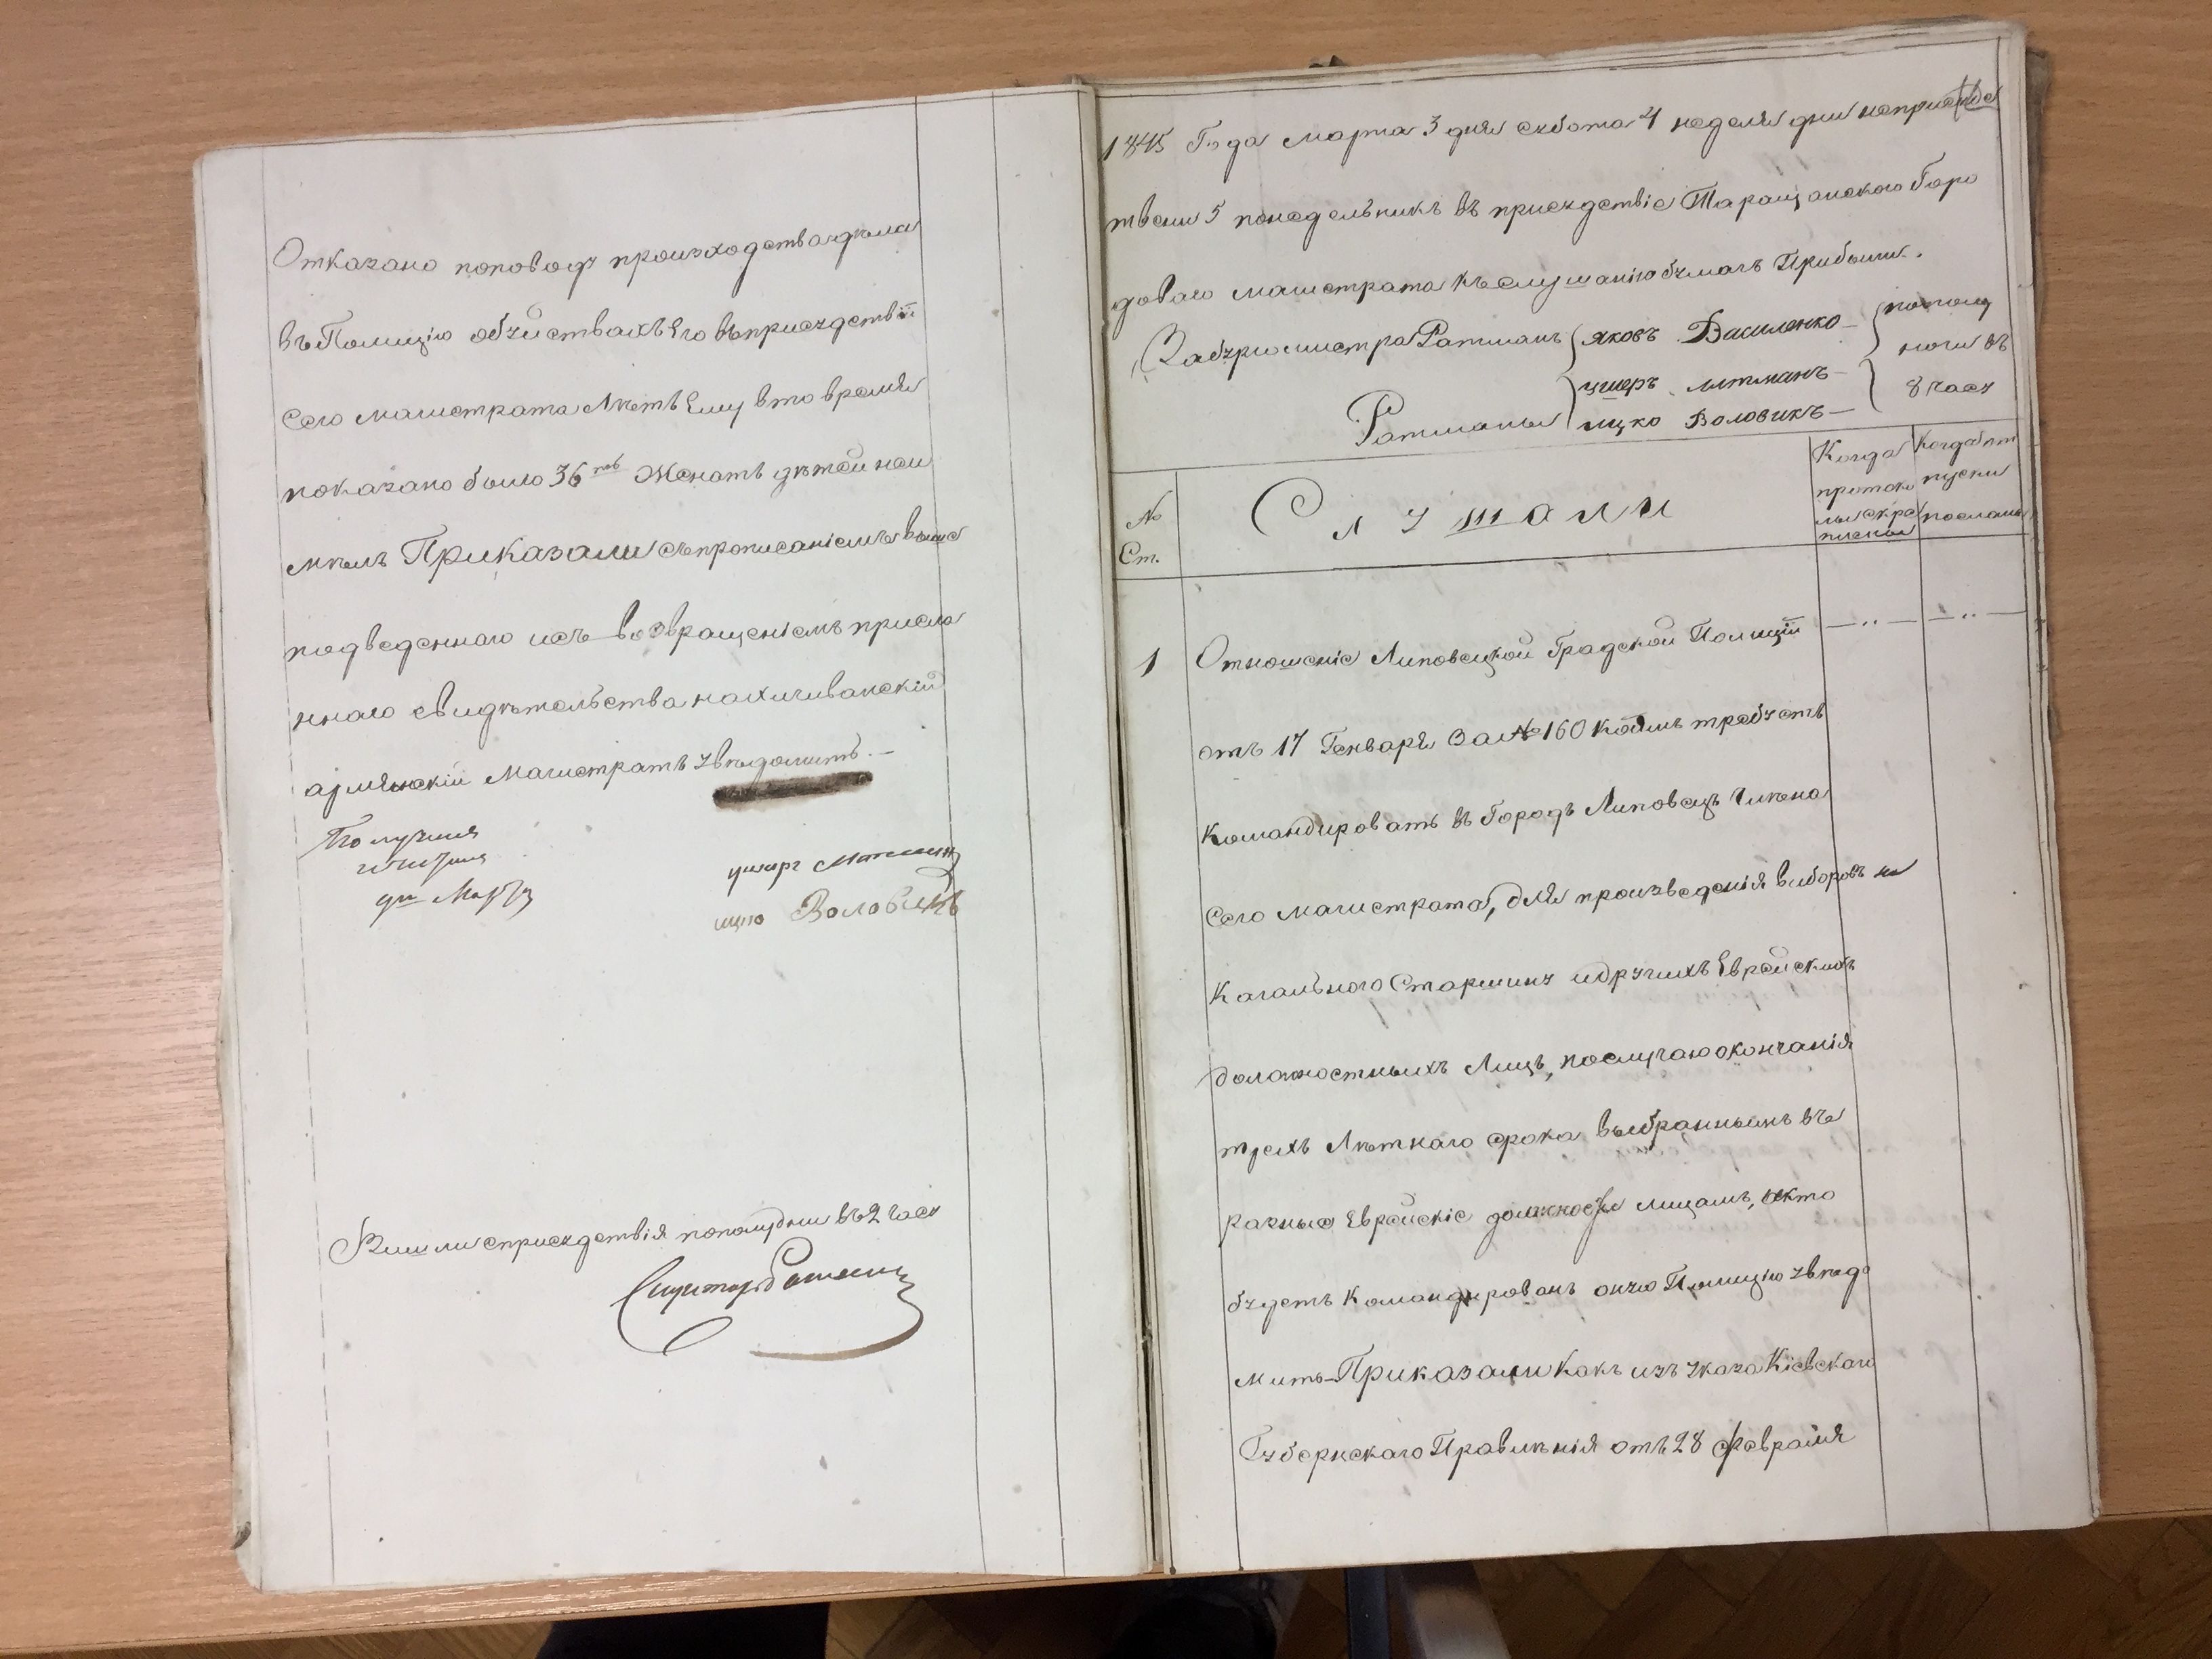 Отказано поповоду произходства дѣла
въ Полицію обчйствахъ Его въ присудствіи
Сего магистрата Лѣтъ Ему вто время
показано было 36ть Женатъ дѣтей неи
мѣлъ Приказали съ прописаніемъ выше
подведеннаго исъ возвращеніемъ присла
ннаго свидѣтельства нахичиванскій
армянскій Магистратъ увѣдомить. —
Получил
дн Марта
ицко Воловикъ
Вишли сприсудствія пополудни въ 2 часу
1845 Года марта 3 дня субота 4 неделя дни неприсуд
твени 5 понедельникъ въ присудствіе Таращанского Горо
доваго магистрата къ слушанію бумагъ Прибыли.
За бургомистра Ратманъ яковъ Василенко пополу
ушеръ Литманъ ночи въ
Ратманы ицко Воловикъ 8 часу
№ Ст. Слушали
Когда протоко лы скре плены
Когда от пуски посланы
1 Отношеніе Липовецкой Градской Полиціи
отъ 17 Генваря За № 160 коимъ требуетъ
командировать въ Городъ Липовецъ Члѣна
Сего магистрата, для произведенія виборовъ на
Кагального Старшину идругихъ Еврейскихъ
должностныхъ Лицъ, послучаю окончанія
трехъ Лѣтнаго срока выбраннымъ въ
разные Еврейскіе должности лицамъ, икто
будетъ командированъ оную Полицію увѣдо
мить — Приказали Какъ изъ указа Кіевскаго
Губернскаго Правленія отъ 28 февраля